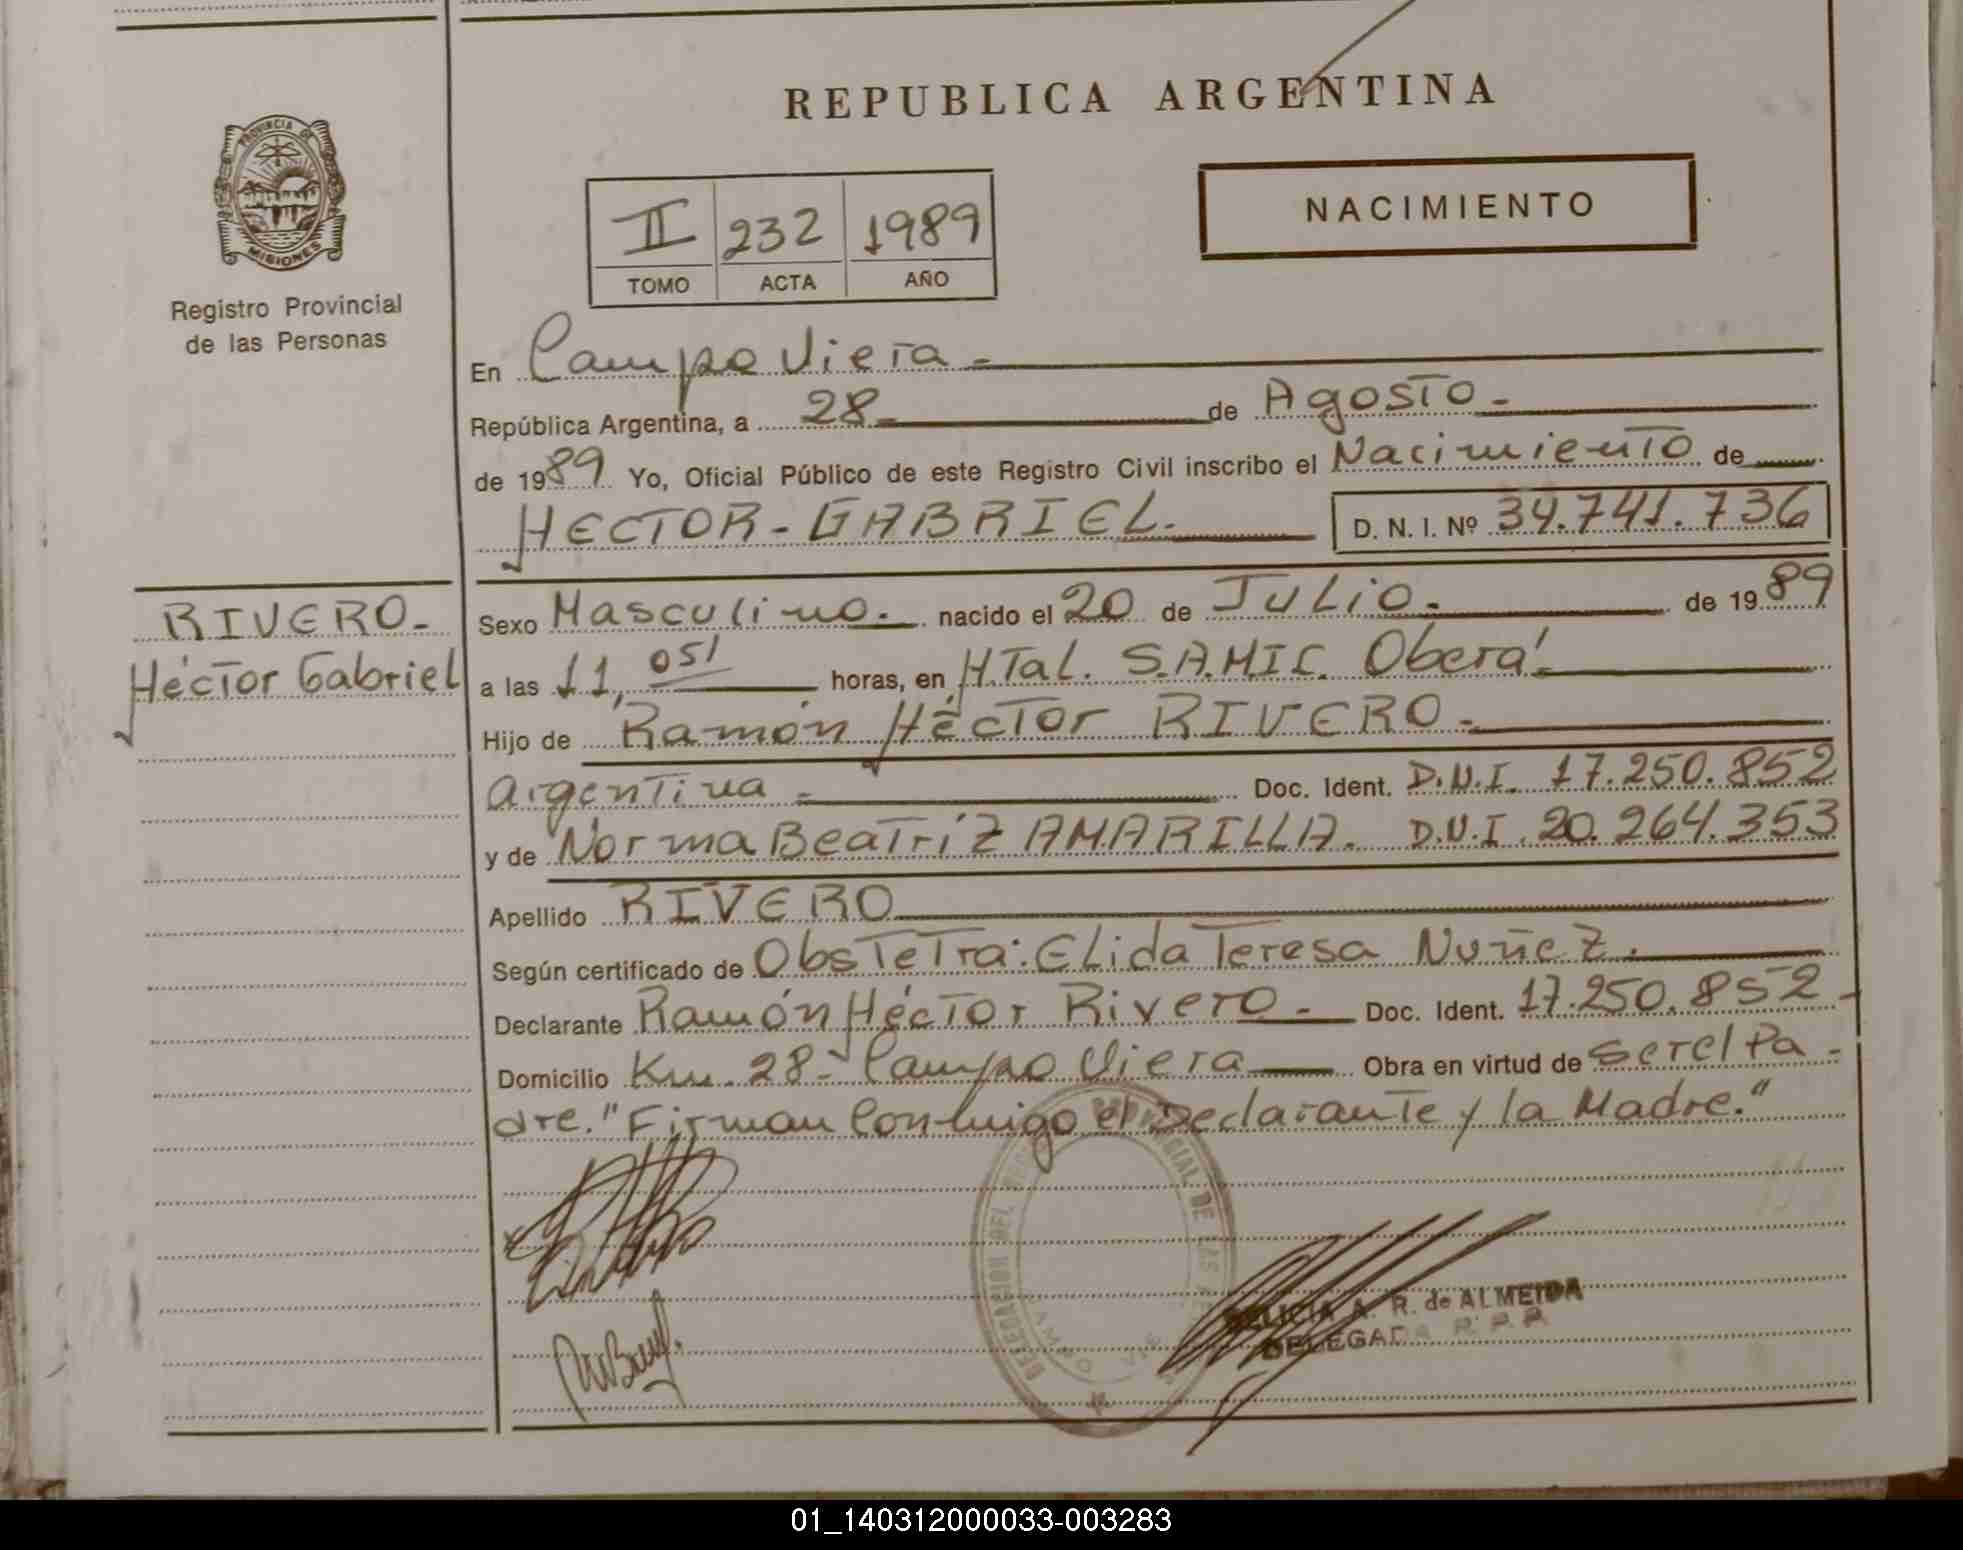 REPUBLICA ARGENTINA
PROVINCIA DE
MISIONES
Registro Provincial
de las Personas
II 232 1989
TOMO ACTA AÑO
NACIMIENTO
En Campo Viera -
República Argentina, a 28 de Agosto -
de 1989 Yo, Oficial Público de este Registro Civil inscribo el Nacimiento de
HECTOR - GABRIEL. D. N. I. Nº 34.741.736
RIVERO -
Héctor Gabriel
Sexo Masculino. nacido el 20 de JULIO. de 1989
a las 11, 05' horas, en H.Tal. S.A.M.I.C. Oberá
Hijo de Ramón Héctor RIVERO -
argentina - Doc. Ident. D.N.I. 17.250.852
y de Norma Beatríz AMARILLA. D.N.I. 20.264.353
Apellido RIVERO
Según certificado de Obstetra: Elida Teresa Nuñez.
Declarante Ramón Héctor Rivero - Doc. Ident. 17.250.852 -
Domicilio Km. 28 - Campo Viera Obra en virtud de ser el Pa -
dre. "Firman Conmigo el Declarante y la Madre."
DELEGACION DEL PROVINCIAL DE LAS
CAMPO VIE
DELICIA A. R. de ALMEIDA
DELEGADA R. P. P.
01_140312000033-003283